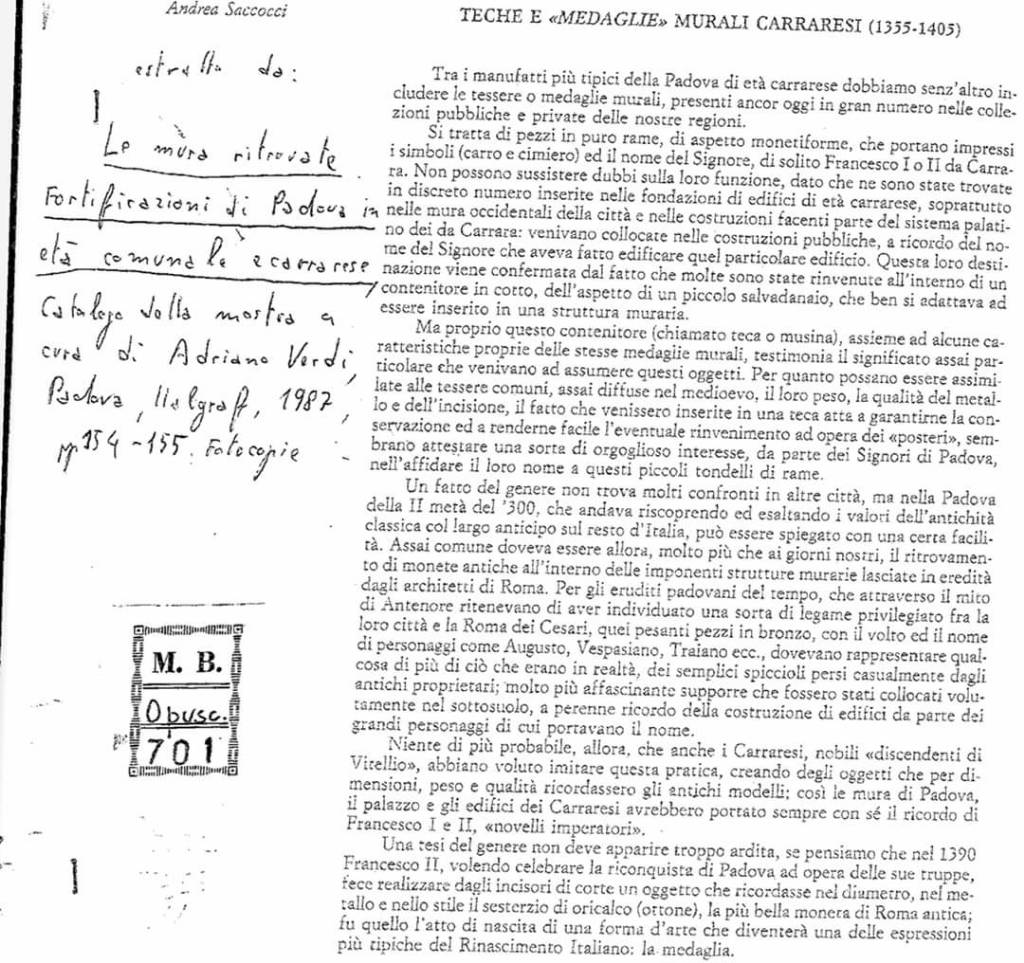 Andrea Saccocci
TECHE E «MEDAGLIE» MURALI CARRARESI (1355-1405)
estratto da:
Le mura ritrovate
Fortificazioni di Padova in
età comunale e carrarese,
Catalogo della mostra a
cura di Adriano Verdi,
Padova, Italgraf, 1987,
pp. 154-155. Fotocopie
M. B.
Opusc.
701
Tra i manufatti più tipici della Padova di età carrarese dobbiamo senz'altro in-
cludere le tessere o medaglie murali, presenti ancor oggi in gran numero nelle colle-
zioni pubbliche e private delle nostre regioni.
Si tratta di pezzi in puro rame, di aspetto monetiforme, che portano impressi
i simboli (carro e cimiero) ed il nome del Signore, di solito Francesco I o II da Carra-
ra. Non possono sussistere dubbi sulla loro funzione, dato che ne sono state trovate
in discreto numero inserite nelle fondazioni di edifici di età carrarese, soprattutto
nelle mura occidentali della città e nelle costruzioni facenti parte del sistema palati-
no dei da Carrara: venivano collocate nelle costruzioni pubbliche, a ricordo del no-
me del Signore che aveva fatto edificare quel particolare edificio. Questa loro desti-
nazione viene confermata dal fatto che molte sono state rinvenute all'interno di un
contenitore in cotto, dell'aspetto di un piccolo salvadanaio, che ben si adattava ad
essere inserito in una struttura muraria.
Ma proprio questo contenitore (chiamato teca o musina), assieme ad alcune ca-
ratteristiche proprie delle stesse medaglie murali, testimonia il significato assai par-
ticolare che venivano ad assumere questi oggetti. Per quanto possano essere assimi-
late alle tessere comuni, assai diffuse nel medioevo, il loro peso, la qualità del metal-
lo e dell'incisione, il fatto che venissero inserite in una teca atta a garantirne la con-
servazione ed a renderne facile l'eventuale rinvenimento ad opera dei «posteri», sem-
brano attestare una sorta di orgoglioso interesse, da parte dei Signori di Padova,
nell'affidare il loro nome a questi piccoli tondelli di rame.
Un fatto del genere non trova molti confronti in altre città, ma nella Padova
della II metà del '300, che andava riscoprendo ed esaltando i valori dell'antichità
classica col largo anticipo sul resto d'Italia, può essere spiegato con una certa facili-
tà. Assai comune doveva essere allora, molto più che ai giorni nostri, il ritrovamen-
to di monete antiche all'interno delle imponenti strutture murarie lasciate in eredità
dagli architetti di Roma. Per gli eruditi padovani del tempo, che attraverso il mito
di Antenore ritenevano di aver individuato una sorta di legame privilegiato fra la
loro città e la Roma dei Cesari, quei pesanti pezzi in bronzo, con il volto ed il nome
di personaggi come Augusto, Vespasiano, Traiano ecc., dovevano rappresentare qual-
cosa di più di ciò che erano in realtà, dei semplici spiccioli persi casualmente dagli
antichi proprietari; molto più affascinante supporre che fossero stati collocati volu-
tamente nel sottosuolo, a perenne ricordo della costruzione di edifici da parte dei
grandi personaggi di cui portavano il nome.
Niente di più probabile, allora, che anche i Carraresi, nobili «discendenti di
Vitellio», abbiano voluto imitare questa pratica, creando degli oggetti che per di-
mensioni, peso e qualità ricordassero gli antichi modelli; così le mura di Padova,
il palazzo e gli edifici dei Carraresi avrebbero portato sempre con sé il ricordo di
Francesco I e II, «novelli imperatori».
Una tesi del genere non deve apparire troppo ardita, se pensiamo che nel 1390
Francesco II, volendo celebrare la riconquista di Padova ad opera delle sue truppe,
fece realizzare dagli incisori di corte un oggetto che ricordasse nel diametro, nel me-
tallo e nello stile il sesterzio di oricalco (ottone), la più bella moneta di Roma antica;
fu quello l'atto di nascita di una forma d'arte che diventerà una delle espressioni
più tipiche del Rinascimento Italiano: la medaglia.